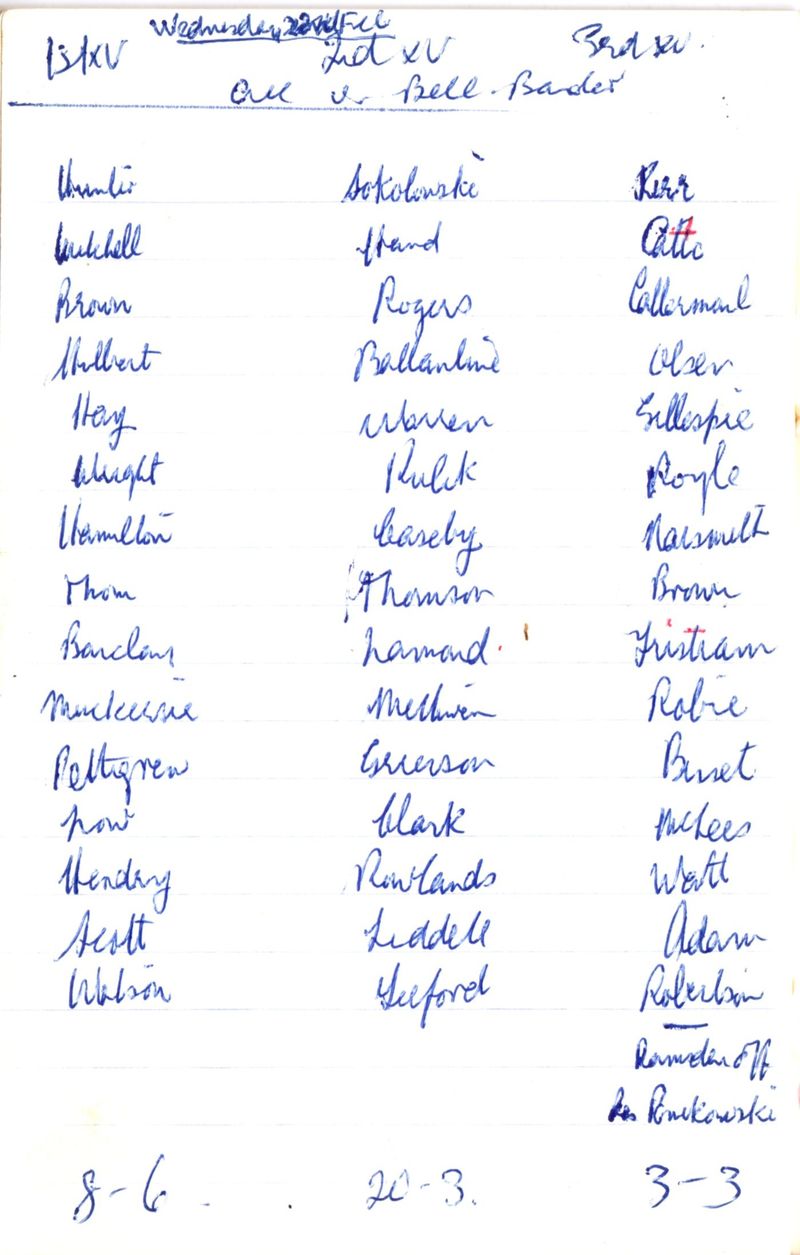 Wednesday 22nd Feb
1st XV 2nd XV 3rd XV.
All v. Bell-Baxter
Hunter Sokolowski Kerr
Mitchell Hand Catto
Brown Rogers
Hulbert Ballantine Olsen
Hay Warren Gillespie
Wright Kulik Royle
Hamilton Caseby Naismith
Thom Thomson Brown
Barclay Lamond Tristram
Mackenzie Methven Robie
Pettigrew Grierson Bisset
Low Clark McLees
Hendry Rowlands Watt
Scott Liddell Adam
Watson Robertson
Ramsden off
Res
8-6. 20-3. 3-3